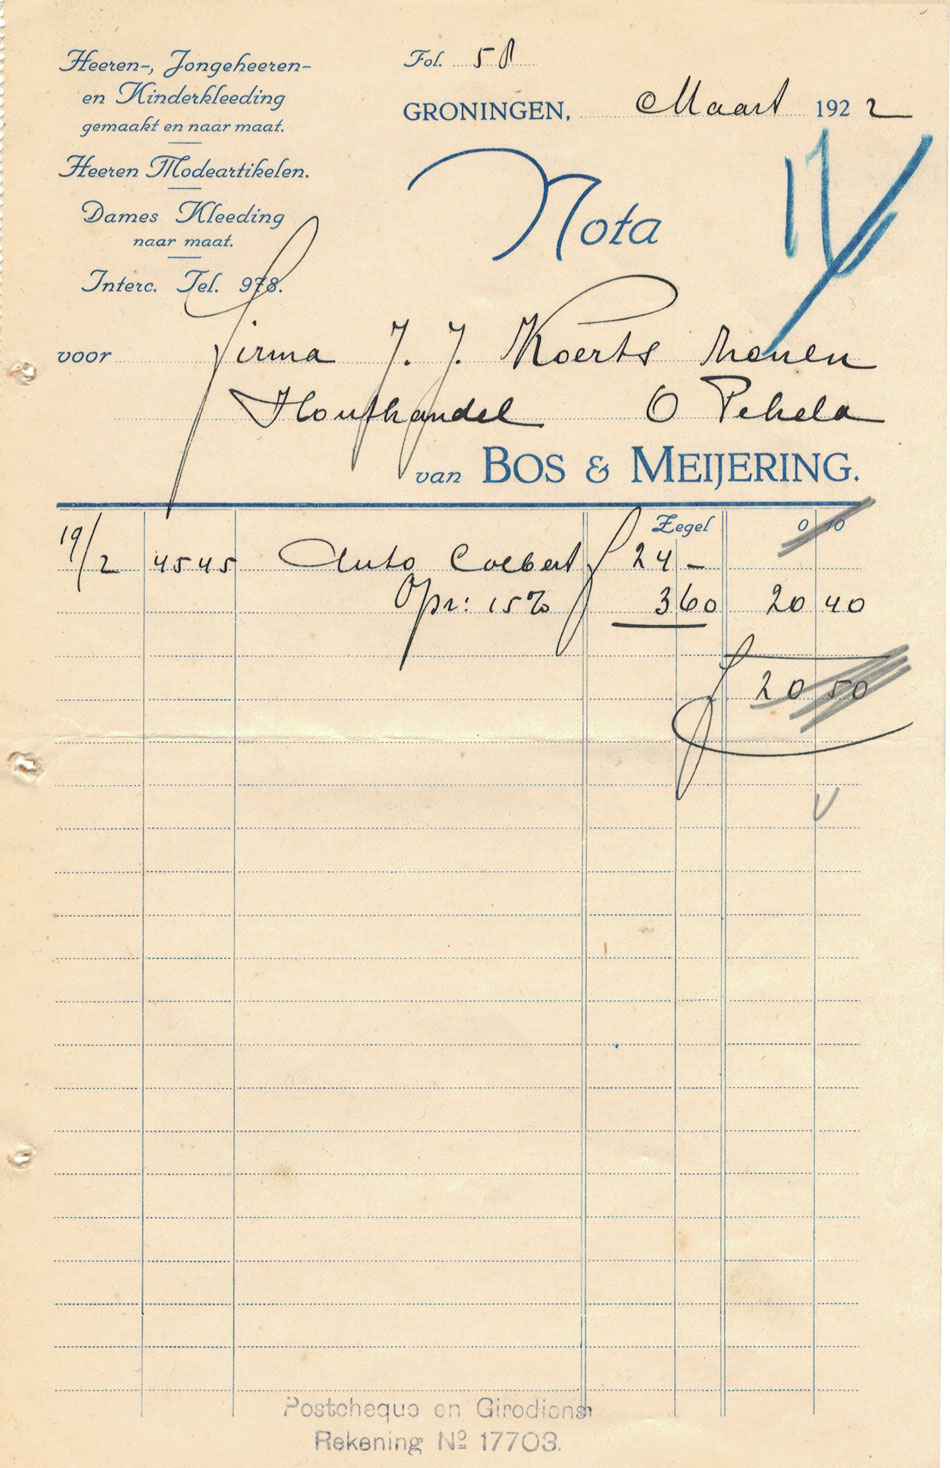 Heeren-, Jongeheeren-
en Kinderkleeding
gemaakt en naar maat.
Heeren Modeartikelen.
Dames Kleeding
naar maat.
Interc. Tel. 978.
Fol. 58
GRONINGEN, Maart 1922
Nota
voor Firma J. J. Koerts
Houthandel O Pekela
van BOS & MEIJERING.
Zegel 0 10
19/2 4545 Auto Colbert f 24 –
Opr: 15% 3 60 20 40
f 20 50
Postcheque en Girodienst
Rekening Nº 17703.